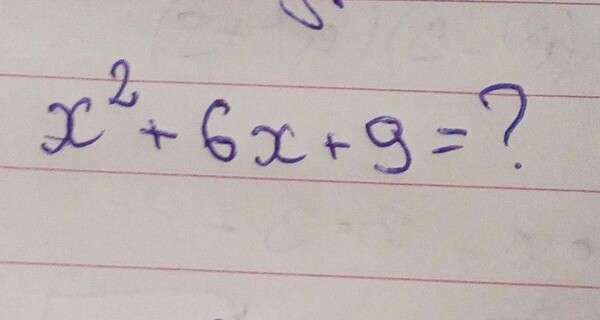 x² + 6x + 9 = ?